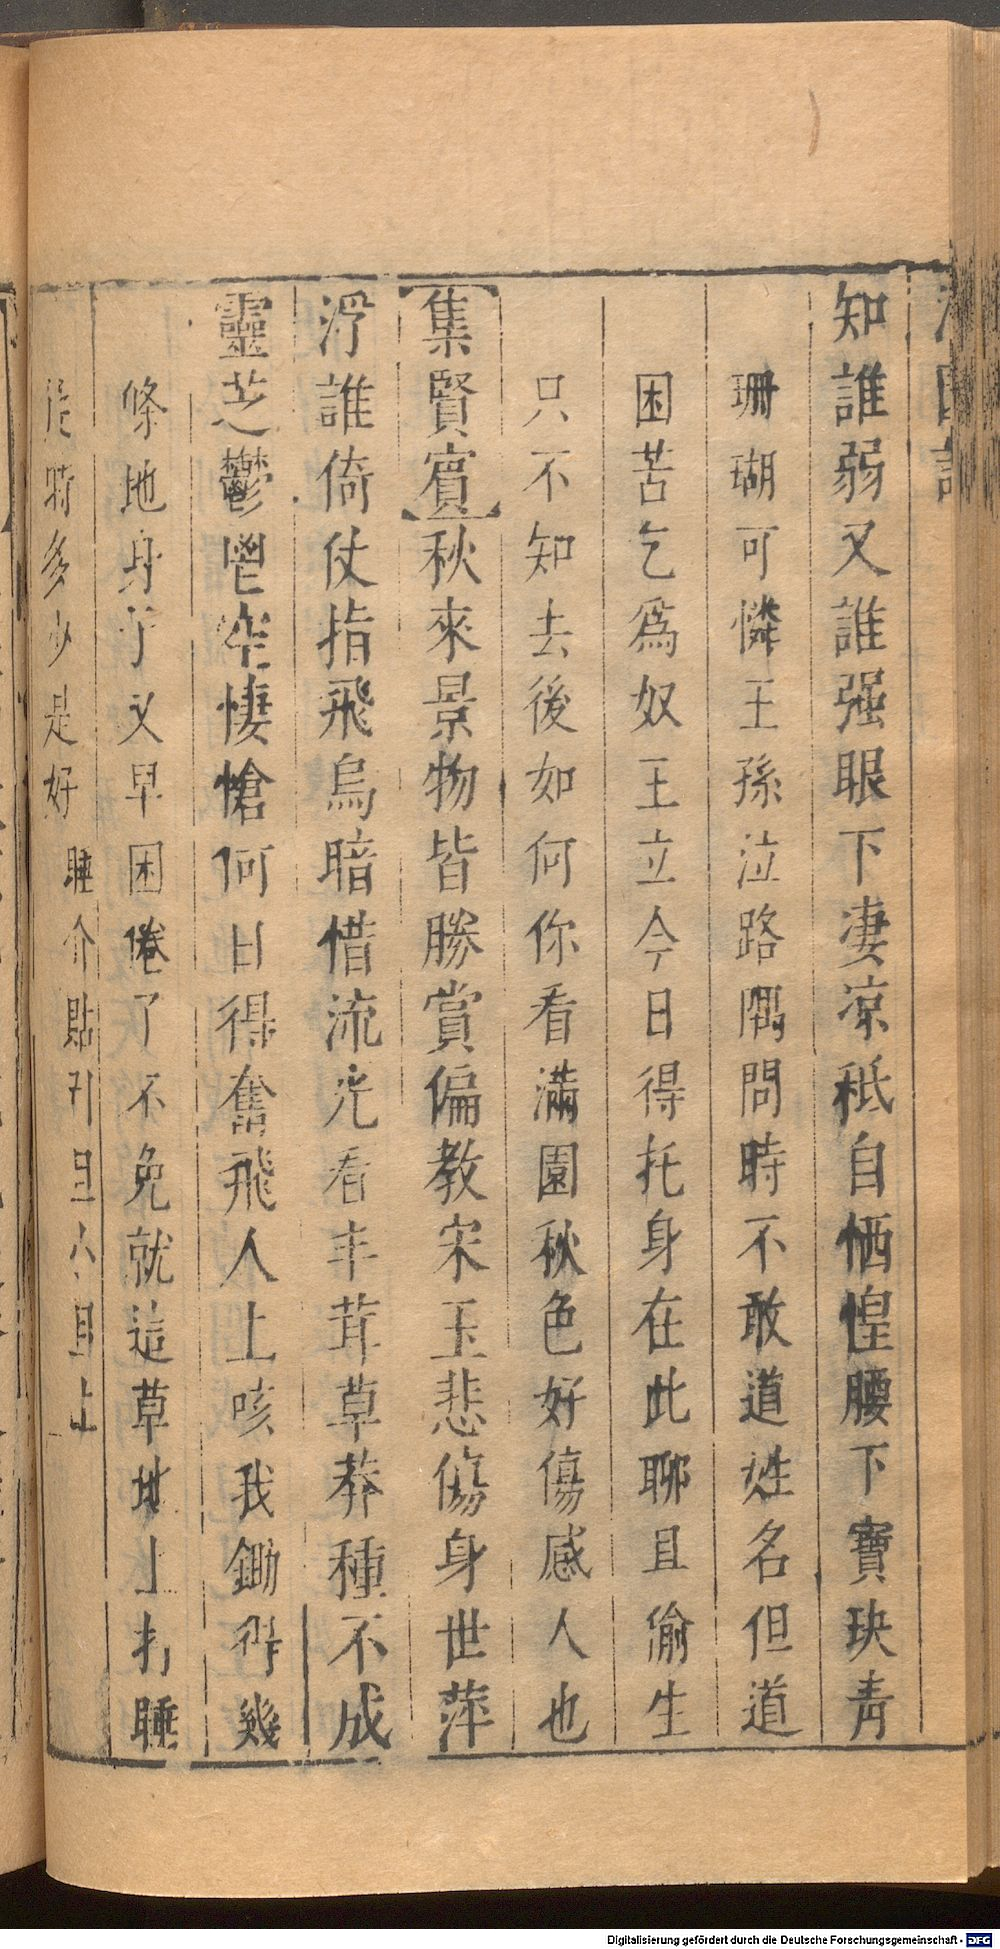 知誰弱又誰强眼下凄凉秪自恓惶腰下寶玦靑
珊瑚可憐王孫泣路隅問時不敢道姓名但道
困苦乞爲奴王立今日得托身在此聊且偷生
只不知去後如何你看滿園秋色好傷感人也
【集賢賓】秋來景物皆勝賞偏教宋玉悲傷身世萍
浮誰倚仗指飛鳥暗惜流光看丰茸草莽種不成
靈芝鬱鬯空悽愴何日得奮飛人上咳我鋤得幾
條地身子又早困倦了不免就這草地上打睡
些時多少是好 睡介貼引旦小旦上
Digitalisierung gefördert durch die Deutsche Forschungsgemeinschaft - DFG